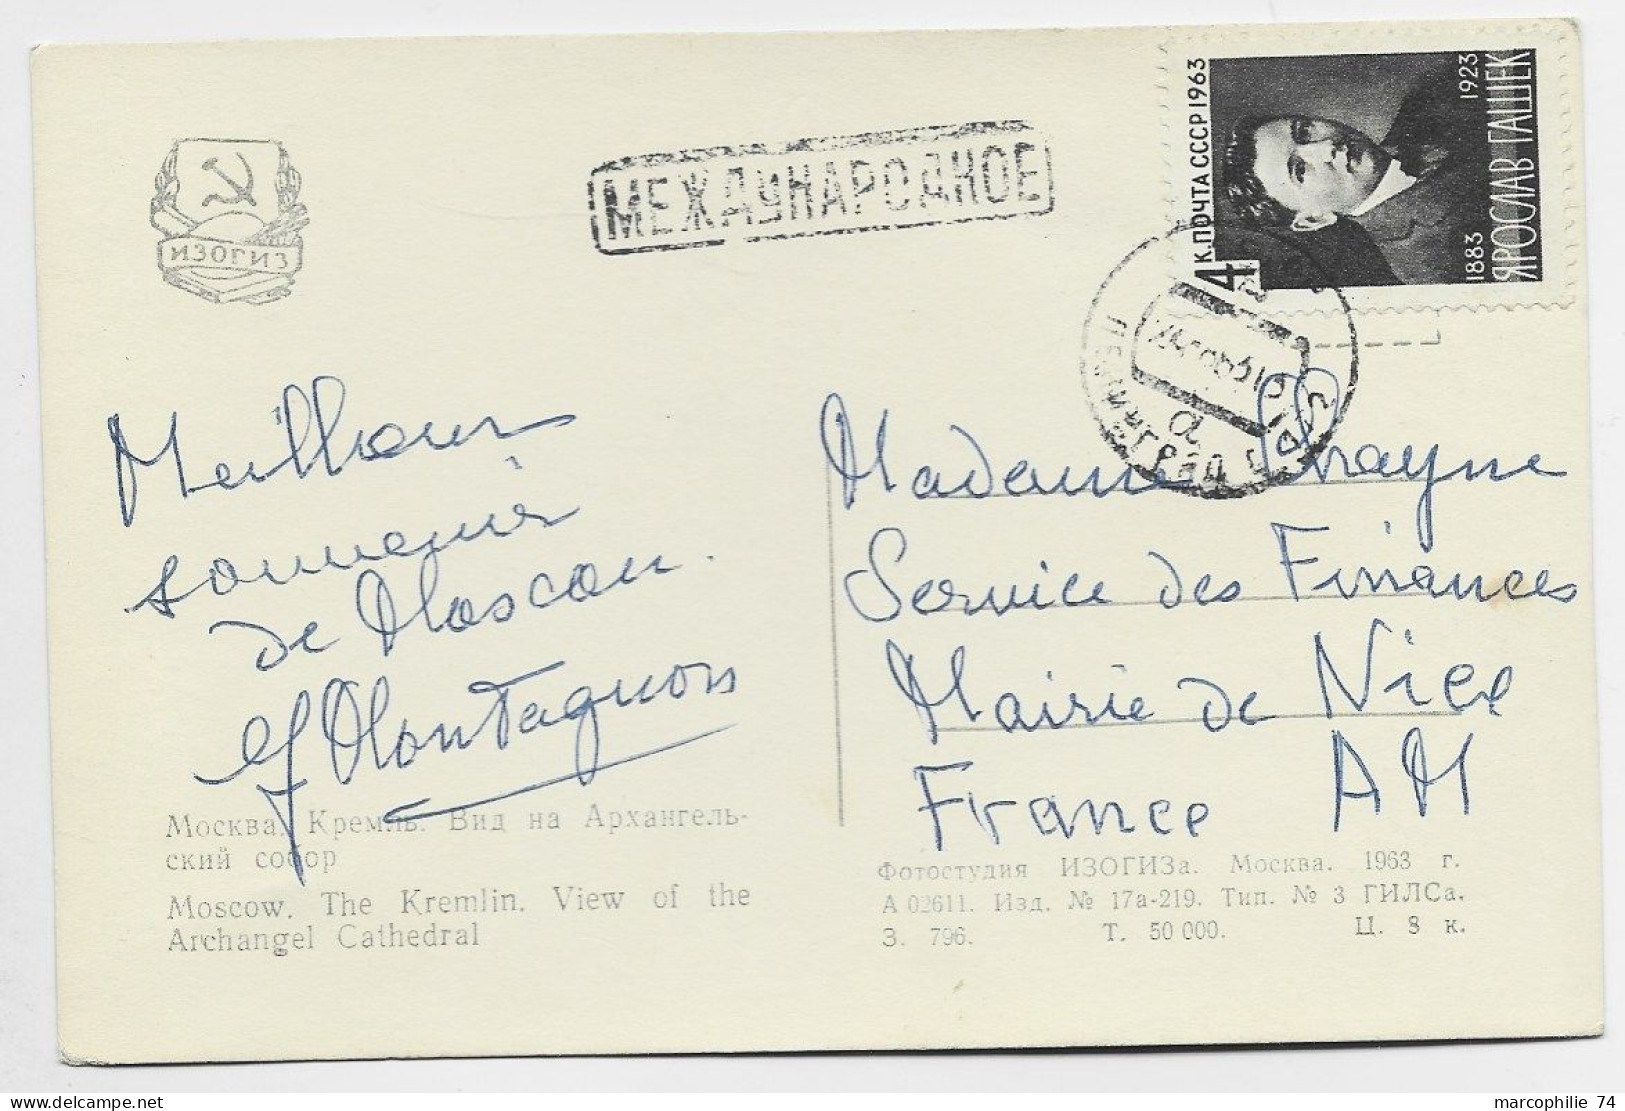 ИЗОГИЗ
МЕЖДУНАРОДНОЕ
4 К. ПОЧТА СССР 1963
1883 1923
ЯРОСЛАВ ГАШЕК
ЛЕНИНГРАД
Meilleurs
souvenirs
de Moscou.
Montagnon
Madame
Service des Finances
Mairie de Nice
France AM
Москва. Кремль. Вид на Архангель-
ский собор
Moscow. The Kremlin. View of the
Archangel Cathedral
Фотостудия ИЗОГИЗа. Москва. 1963 г.
А 02611. Изд. № 17а-219. Тип. № 3 ГИЛСа.
З. 796. Т. 50 000. Ц. 8 к.
marcophilie 74